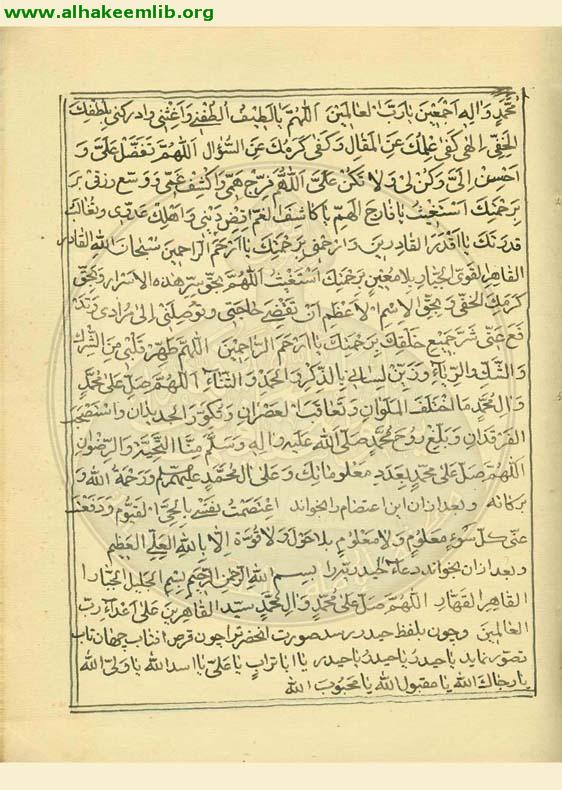 www.alhakeemlib.org
مُحَمَّدٍ وَالِهِ اَجْمَعِيْنَ يَا رَبَّ الْعَالَمِيْنَ اَللّٰهُمَّ يَا لَطِيْفُ اُلْطُفْنِيْ وَاَغِثْنِيْ وَادْرِكْنِيْ بِلُطْفِكَ
الْخَفِيِّ اِلٰهِيْ كَفٰى عِلْمُكَ عَنِ الْمَقَالِ وَكَفٰى كَرَمُكَ عَنِ السُّؤَالِ اَللّٰهُمَّ تَفَضَّلْ عَلَيَّ وَ
اَحْسِنْ اِلَيَّ وَكُنْ لِيْ وَلَا تَكُنْ عَلَيَّ اَللّٰهُمَّ فَرِّجْ هَمِّيْ وَاكْشِفْ غَمِّيْ وَ وَسِّعْ رِزْقِيْ بَر
بِرَحْمَتِكَ اَسْتَغِيْثُ يَا فَارِجَ الْهَمِّ يَا كَاشِفَ الْغَمِّ اِقْضِ دَيْنِيْ وَاَهْلِكْ عَدُوِّيْ
قُدْرَتِكَ يَا اَقْدَرَ الْقَادِرِيْنَ وَارْحَمْنِيْ بِرَحْمَتِكَ يَا اَرْحَمَ الرَّاحِمِيْنَ سُبْحَانَ اللهِ الْقَادِرِ
الْقَاهِرِ الْقَوِيِّ الْجَبَّارِ بِلَا مُعِيْنٍ بِرَحْمَتِكَ اَسْتَغِيْثُ اَللّٰهُمَّ بِحَقِّ سِرِّ هٰذِهِ الْاَسْرَارِ وَبِحَقِّ
كَرَمِكَ الْخَفِيِّ وَبِحَقِّ الْاِسْمِ الْاَعْظَمِ اَنْ تَقْضِيَ حَاجَتِيْ وَتُوْصِلَنِيْ اِلٰى مُرَادِيْ وَتَدْ
فَعَ عَنِّيْ شَرَّ جَمِيْعِ خَلْقِكَ بِرَحْمَتِكَ يَا اَرْحَمَ الرَّاحِمِيْنَ اَللّٰهُمَّ طَهِّرْ قَلْبِيْ مِنَ الشِّرْكِ
وَالشَّكِّ وَالرِّيَاءِ وَزَيِّنْ لِسَانِيْ بِالذِّكْرِ وَالْحَمْدِ وَالثَّنَاءِ اَللّٰهُمَّ صَلِّ عَلٰى مُحَمَّدٍ
وَ اٰلِ مُحَمَّدٍ مَا اخْتَلَفَ الْمَلَوَانِ وَتَعَاقَبَ الْعَصْرَانِ وَتَكَوَّرَ الْجَدِيْدَانِ وَاسْتَصْحَبَ
الْفَرْقَدَانِ وَبَلِّغْ رُوْحَ مُحَمَّدٍ صَلَّى اللهُ عَلَيْهِ وَالِهِ وَسَلَّمَ مِنَّا التَّحِيَّةَ وَالرِّضْوَانَ
اَللّٰهُمَّ صَلِّ عَلٰى مُحَمَّدٍ بِعَدَدِ مَعْلُوْمَاتِكَ وَعَلٰى اٰلِ مُحَمَّدٍ عَلَيْهِمْ وَرَحْمَةُ اللهِ وَ
بَرَكَاتُهُ وبعد ازان این اعتصام را بخواند اِعْتَصَمْتُ بِنَفْسِيْ بِالْحَيِّ الْقَيُّوْمِ وَدَفَعْتُ
عَنِّيْ كُلَّ سُوْءٍ مَعْلُوْمٍ وَلَا مَعْلُوْمٍ بِلَاحَوْلَ وَلَا قُوَّةَ اِلَّا بِاللهِ الْعَلِيِّ الْعَظِيْمِ
وبعد ازان بخواند دعاء حیدریه را بِسْمِ اللهِ الرَّحْمٰنِ الرَّحِيْمِ بِسْمِ الْجَلِيْلِ الْجَبَّارِ
الْقَاهِرِ الْقَهَّارِ اَللّٰهُمَّ صَلِّ عَلٰى مُحَمَّدٍ وَ اٰلِ مُحَمَّدٍ سَيِّدِ الْقَاهِرِيْنَ عَلٰى اَعْدَاءِ رَبِّ
الْعَالَمِيْنَ وچون بلفظ حیدر رسد صورت آنحضرت را چون قرص آفتاب جهان تاب
تصور نماید يَا حَيْدَرُ يَا حَيْدَرُ يَا حَيْدَرُ يَا اَبَا تُرَابٍ يَا عَلِيُّ يَا اَسَدَ اللهِ يَا وَلِيَّ اللهِ
يَا رِجَالَ اللهِ يَا مَقْبُوْلَ اللهِ يَا مَحْبُوْبَ اللهِ